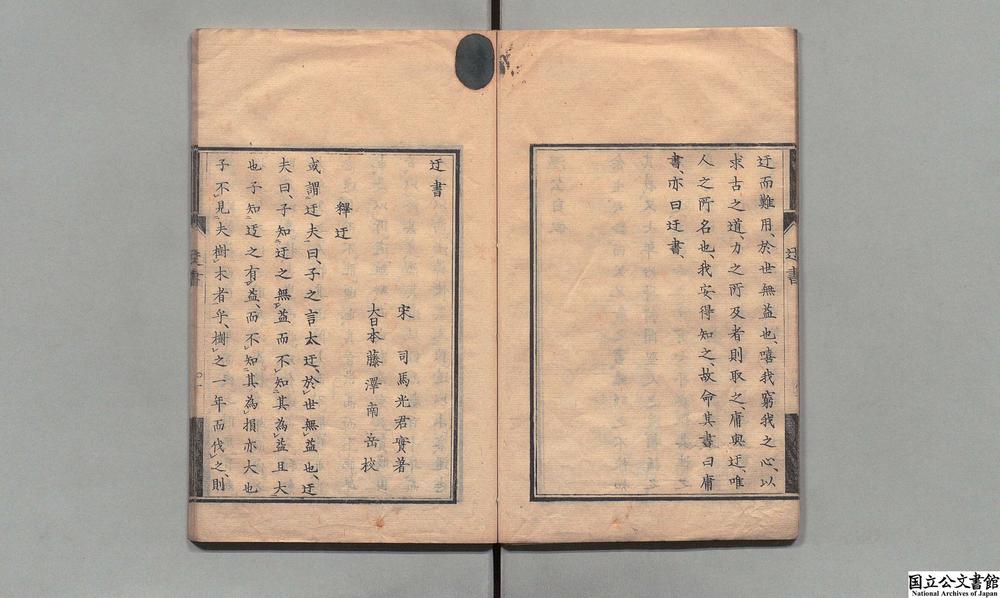 迂而難用、於世無益也、嘻我窮我之心、以
求古之道、力之所及者則取之、庸與迂、唯
人之所名也、我安得知之、故命其書曰庸
書、亦曰迂書、
迂書
迂書
宋 司馬光君實著
大日本藤澤南岳校
釋迂
或謂迂夫曰、子之言太迂、於世無益也、迂
夫曰、子知迂之無益而不知其為益且大
也子知迂之有益、而不知其為損亦大也
子不見夫樹木者乎、樹之一年而伐之、則
国立公文書館
National Archives of Japan